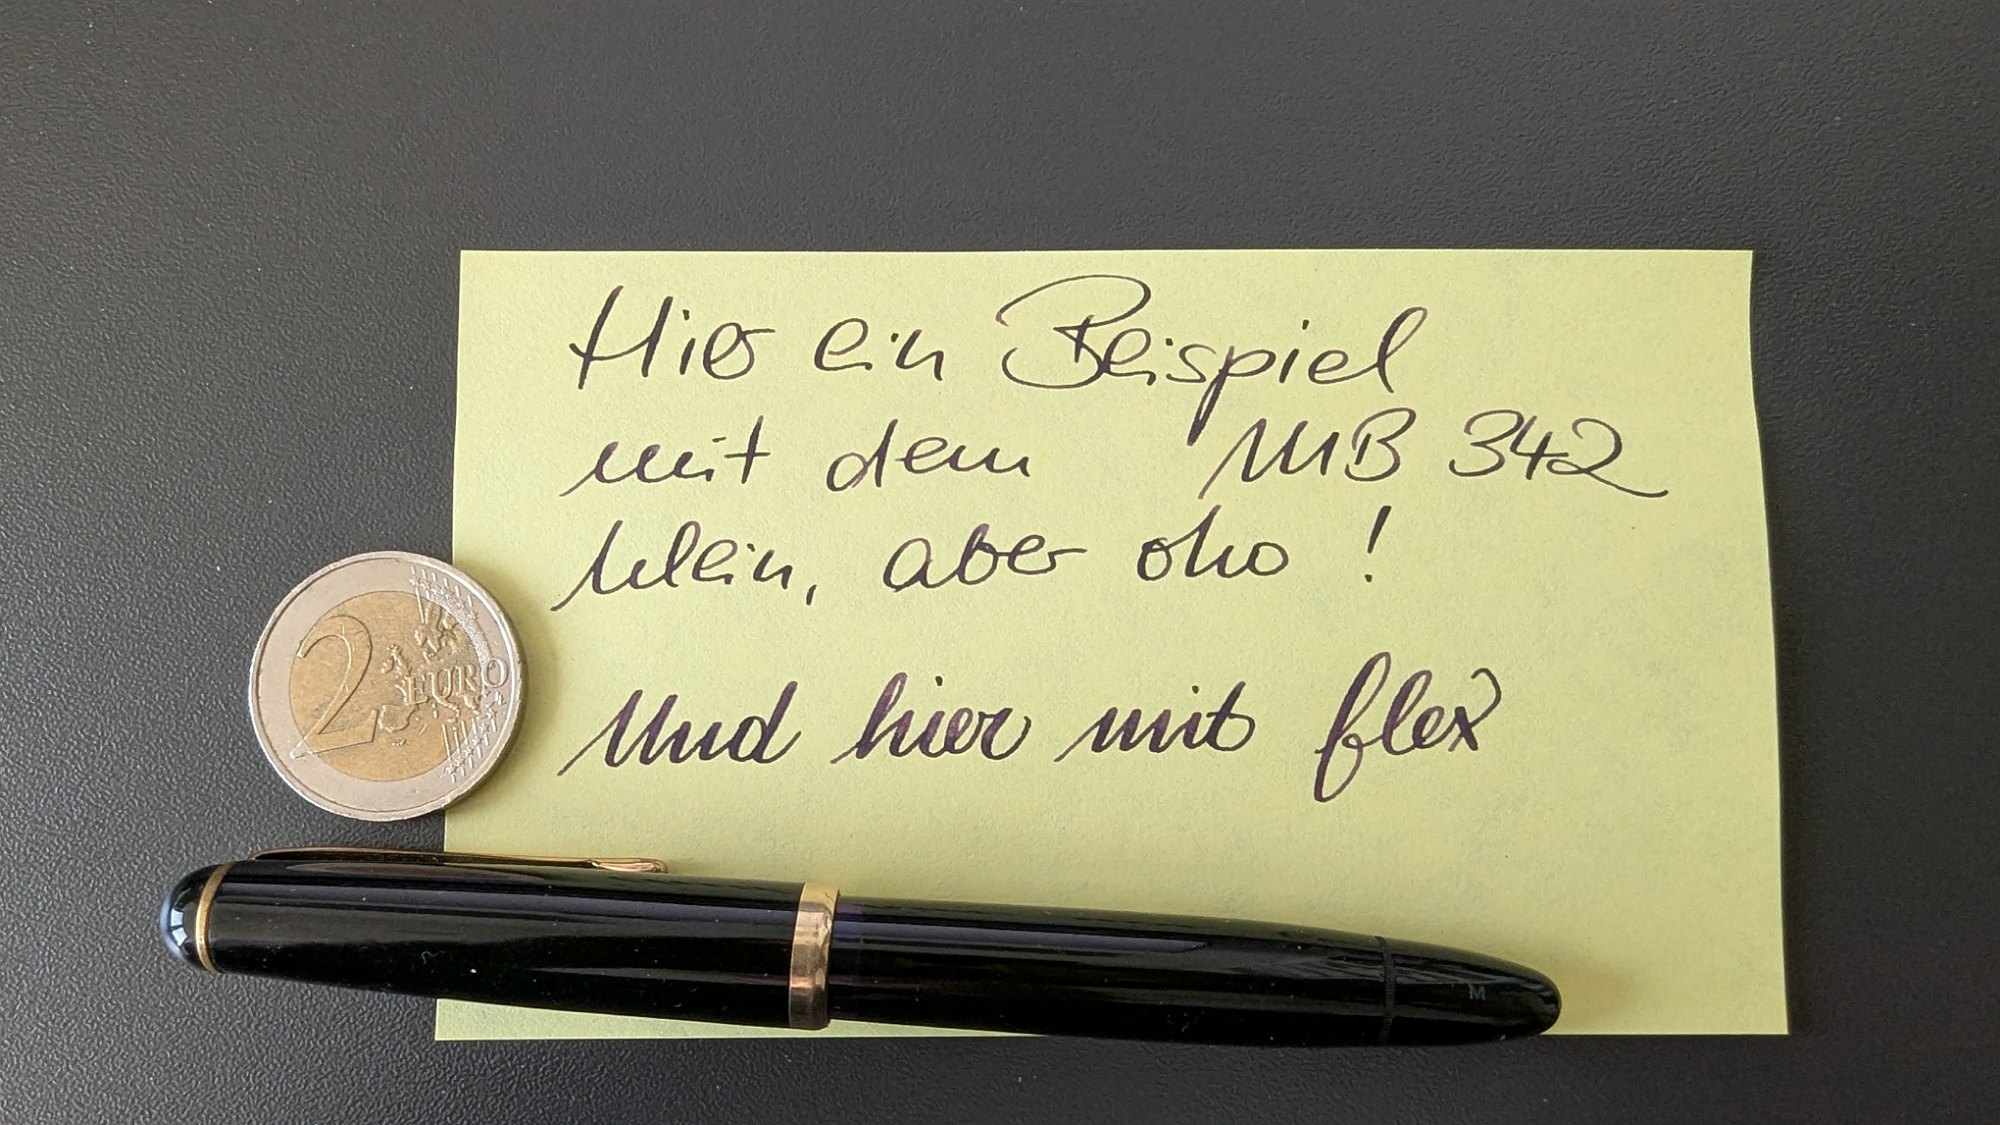 Hier ein Beispiel
mit dem MB 342
klein, aber oho!
Und hier mit flex
2 EURO
M